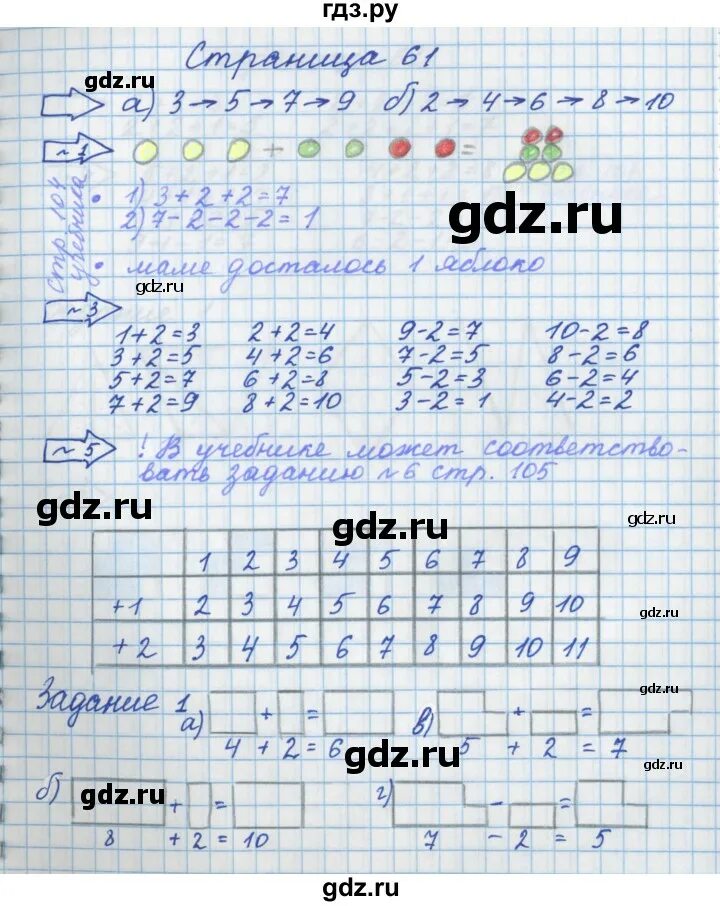 гдз.ру
Страница 61
gdz.ru
а) 3→5→7→9 б) 2→4→6→8→10
~1 + =
gdz.ru
стр. 104 учебника
gdz.ru
• 1) 3+2+2=7
2) 7-2-2-2=1
• маме досталось 1 яблоко
gdz.ru
~3
1+2=3 2+2=4 9-2=7 10-2=8
3+2=5 4+2=6 7-2=5 8-2=6
5+2=7 6+2=8 5-2=3 6-2=4
7+2=9 8+2=10 3-2=1 4-2=2
~5 ! В учебнике может соответство-
вать заданию ~6 стр. 105
gdz.ru
gdz.ru
gdz.ru
1 2 3 4 5 6 7 8 9
+1 2 3 4 5 6 7 8 9 10
gdz.ru
+2 3 4 5 6 7 8 9 10 11
gdz.ru
Задание 1
а) + = в) + =
4 + 2 = 6 5 + 2 = 7
gdz.ru
gdz.ru
б) + = г) - =
gdz.ru
8 + 2 = 10 7 - 2 = 5
gdz.ru
gdz.ru